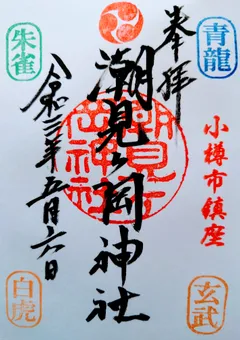 青龍
奉拝
朱雀
潮見ヶ岡神社
小樽市鎮座
令和三年五月六日
玄武
白虎